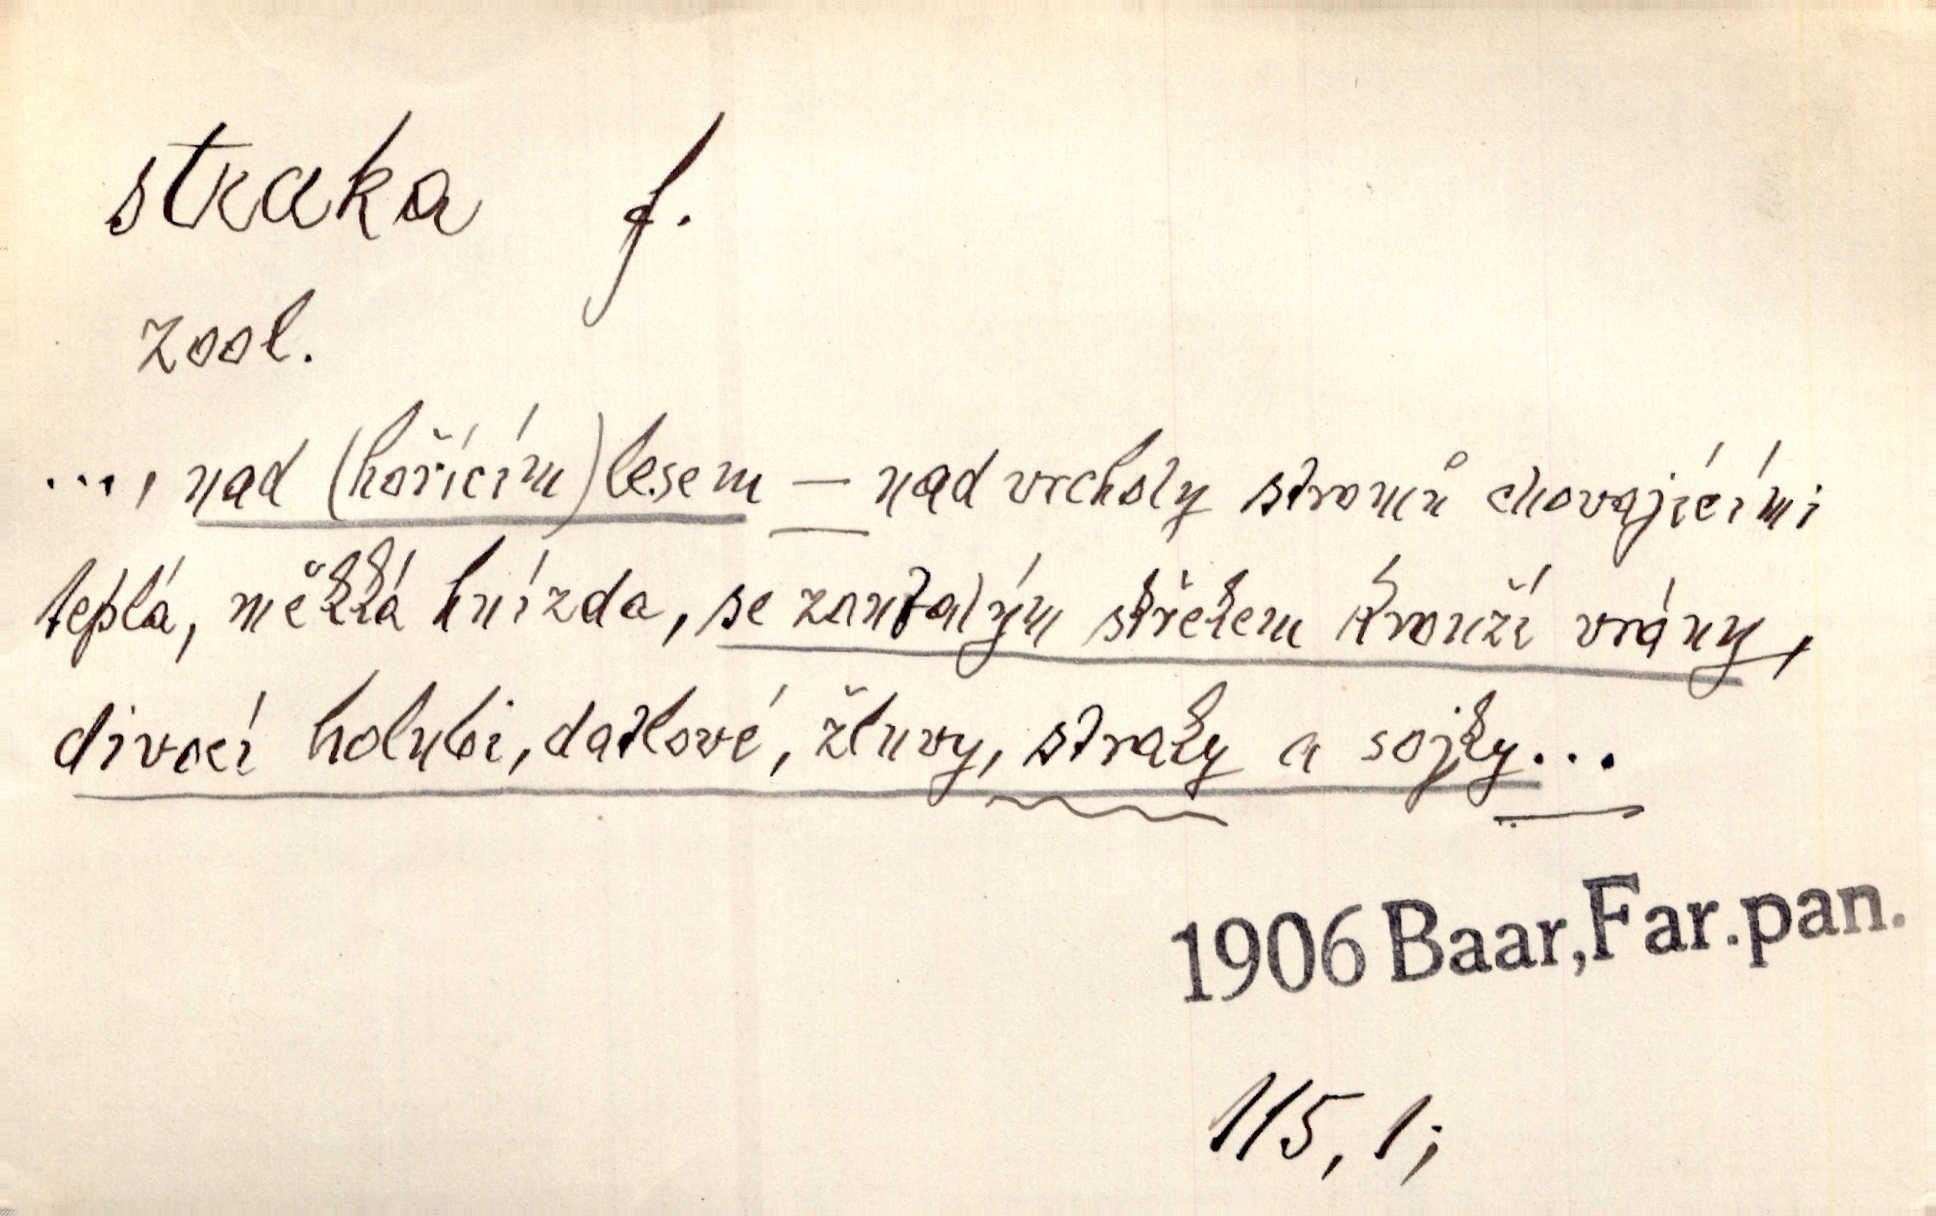 straka f.
zool.
..., nad (hořícím) lesem — nad vrcholy stromů chovajícími
teplá, měkká hnízda, se zoufalým skřekem krouží vrány,
divocí holubi, datlové, žluvy, straky a sojky...
1906 Baar, Far. pan.
115, 1;